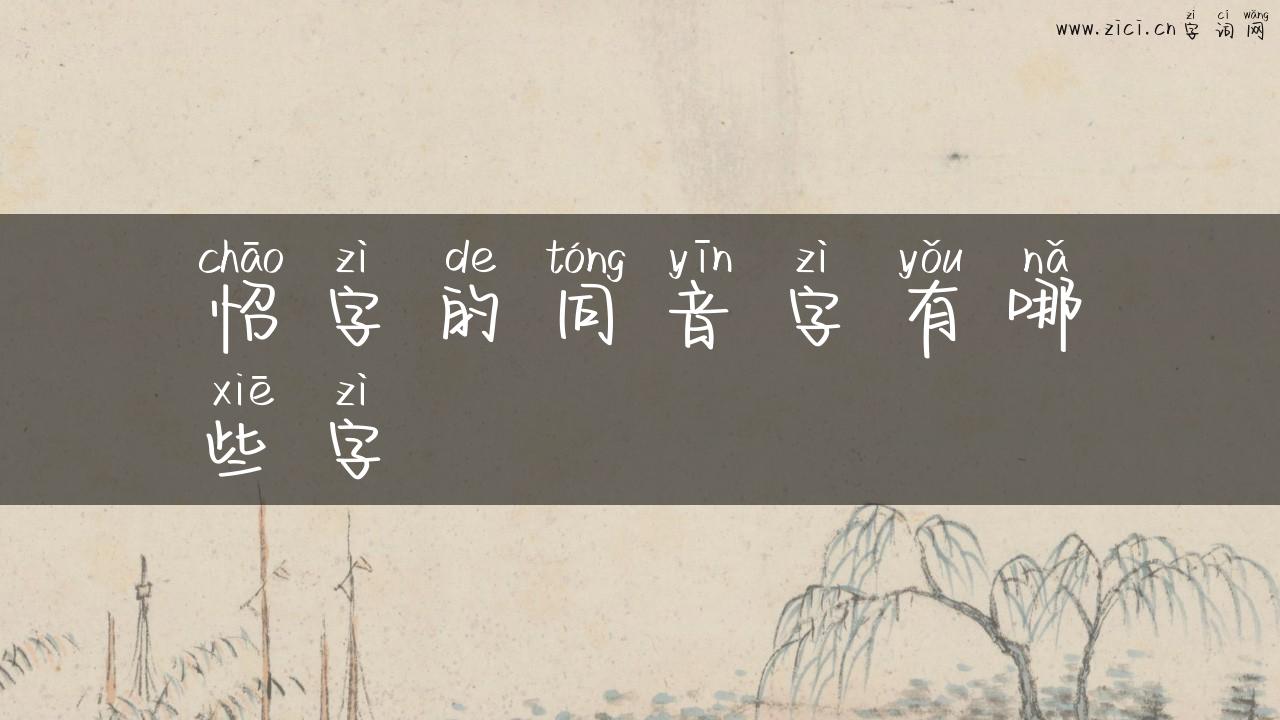 zì cí wǎng
www.zici.cn 字词网
chāo zì de tóng yīn zì yǒu nǎ
怊字的同音字有哪
xiē zì
些字